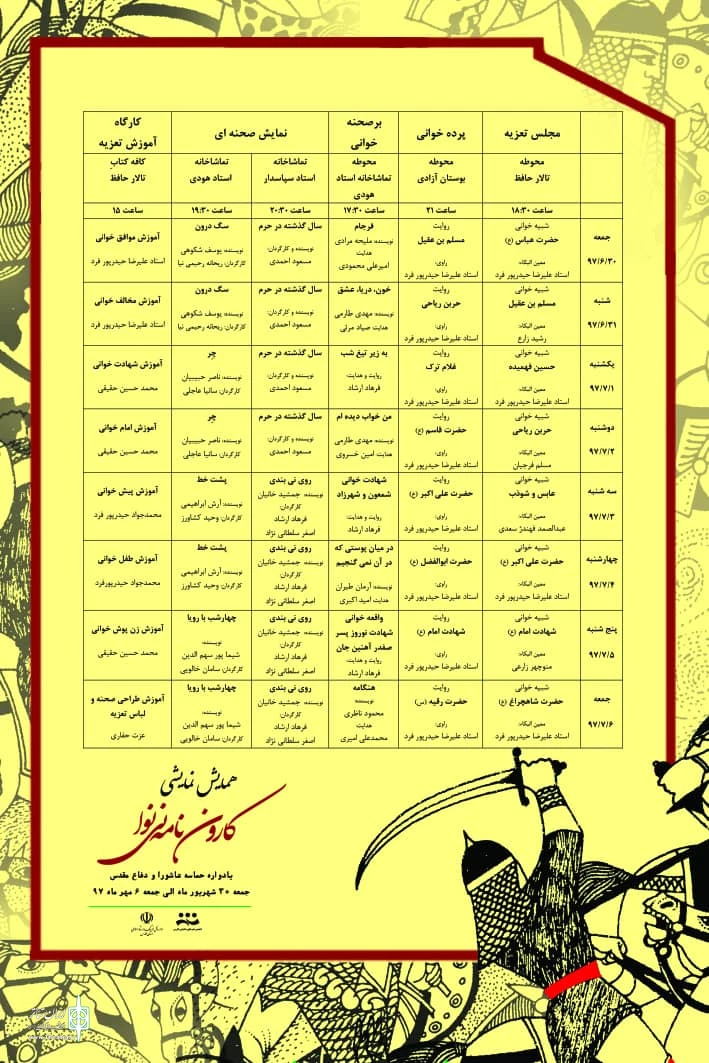 مجلس تعزیه
پرده خوانی
برصحنه خوانی
نمایش صحنه ای
کارگاه آموزش تعزیه
محوطه تالار حافظ
محوطه بوستان آزادی
محوطه تماشاخانه استاد هودی
تماشاخانه استاد سپاسدار
تماشاخانه استاد هودی
کافه کتاب تالار حافظ
ساعت ۱۸:۳۰
ساعت ۲۱
ساعت ۱۷:۳۰
ساعت ۲۰:۳۰
ساعت ۱۹:۳۰
ساعت ۱۵
جمعه
۹۷/۶/۳۰
شبیه خوانی
حضرت عباس (ع)
معین البکاء:
استاد علیرضا حیدرپور فرد
روایت
مسلم بن عقیل
راوی:
استاد علیرضا حیدرپور فرد
فرجام
نویسنده: ملیحه مرادی
هدایت
امیرعلی محمودی
سال گذشته در حرم
نویسنده و کارگردان:
مسعود احمدی
سگ درون
نویسنده: یوسف شکوهی
کارگردان: ریحانه رحیمی نیا
آموزش موافق خوانی
استاد علیرضا حیدرپور فرد
شنبه
۹۷/۶/۳۱
شبیه خوانی
مسلم بن عقیل
معین البکاء:
رشید زارع
روایت
حربن ریاحی
راوی:
استاد علیرضا حیدرپور فرد
خون، دریا، عشق
نویسنده: مهدی طارمی
هدایت صیاد مرئی
سال گذشته در حرم
نویسنده و کارگردان:
مسعود احمدی
سگ درون
نویسنده: یوسف شکوهی
کارگردان: ریحانه رحیمی نیا
آموزش مخالف خوانی
استاد علیرضا حیدرپور فرد
یکشنبه
۹۷/۷/۱
شبیه خوانی
حسین فهمیده
معین البکاء:
استاد علیرضا حیدرپور فرد
روایت
غلام ترک
راوی:
استاد علیرضا حیدرپور فرد
به زیر تیغ شب
روایت و هدایت:
فرهاد ارشاد
سال گذشته در حرم
نویسنده و کارگردان:
مسعود احمدی
چر
نویسنده: ناصر حبیبیان
کارگردان: سانیا عاجلی
آموزش شهادت خوانی
محمد حسین حقیقی
دوشنبه
۹۷/۷/۲
شبیه خوانی
حربن ریاحی
معین البکاء:
مسلم فرجیان
روایت
حضرت قاسم (ع)
راوی:
استاد علیرضا حیدرپور فرد
من خواب دیده ام
نویسنده: مهدی طارمی
هدایت: امین خسروی
سال گذشته در حرم
نویسنده و کارگردان:
مسعود احمدی
چر
نویسنده: ناصر حبیبیان
کارگردان: سانیا عاجلی
آموزش امام خوانی
محمد حسین حقیقی
سه شنبه
۹۷/۷/۳
شبیه خوانی
عابس و شوذب
معین البکاء:
عبدالصمد فهندژ سعدی
روایت
حضرت علی اکبر (ع)
راوی:
استاد علیرضا حیدرپور فرد
شهادت خوانی
شمعون و شهرزاد
روایت و هدایت:
فرهاد ارشاد
روی نی بندی
نویسنده: جمشید خانیان
کارگردان:
فرهاد ارشاد
اصغر سلطانی نژاد
پشت خط
نویسنده: آرش ابراهیمی
کارگردان: وحید کشاورز
آموزش پیش خوانی
محمدجواد حیدرپور فرد
چهارشنبه
۹۷/۷/۴
شبیه خوانی
حضرت علی اکبر (ع)
معین البکاء:
استاد علیرضا حیدرپور فرد
روایت
حضرت ابوالفضل (ع)
راوی:
استاد علیرضا حیدرپور فرد
در میان پوستی که
در آن نمی گنجیم
نویسنده: آرمان طیران
هدایت: امید اکبری
روی نی بندی
نویسنده: جمشید خانیان
کارگردان:
فرهاد ارشاد
اصغر سلطانی نژاد
پشت خط
نویسنده: آرش ابراهیمی
کارگردان: وحید کشاورز
آموزش طفل خوانی
محمدجواد حیدرپورفرد
پنج شنبه
۹۷/۷/۵
شبیه خوانی
شهادت امام (ع)
معین البکاء:
منوچهر زارعی
روایت
شهادت امام (ع)
راوی:
استاد علیرضا حیدرپور فرد
واقعه خوانی
شهادت نوروز پسر
صفدر آهنین جان
روایت و هدایت:
فرهاد ارشاد
روی نی بندی
نویسنده: جمشید خانیان
کارگردان:
فرهاد ارشاد
اصغر سلطانی نژاد
چهارشب با رویا
نویسنده:
شیما پور سهم الدین
کارگردان: سامان خالویی
آموزش زن پوش خوانی
محمد حسین حقیقی
جمعه
۹۷/۷/۶
شبیه خوانی
حضرت شاهچراغ (ع)
معین البکاء:
استاد علیرضا حیدرپور فرد
روایت
حضرت رقیه (س)
راوی:
استاد علیرضا حیدرپور فرد
هنگامه
نویسنده:
محمود ناظری
هدایت
محمدعلی امیری
روی نی بندی
نویسنده: جمشید خانیان
کارگردان:
فرهاد ارشاد
اصغر سلطانی نژاد
چهارشب با رویا
نویسنده:
شیما پور سهم الدین
کارگردان: سامان خالویی
آموزش طراحی صحنه و
لباس تعزیه
عزت حفاری
همایش نمایشی
کاروان نامه نی نوا
یادواره حماسه عاشورا و دفاع مقدس
جمعه ۳۰ شهریور ماه الی جمعه ۶ مهر ماه ۹۷